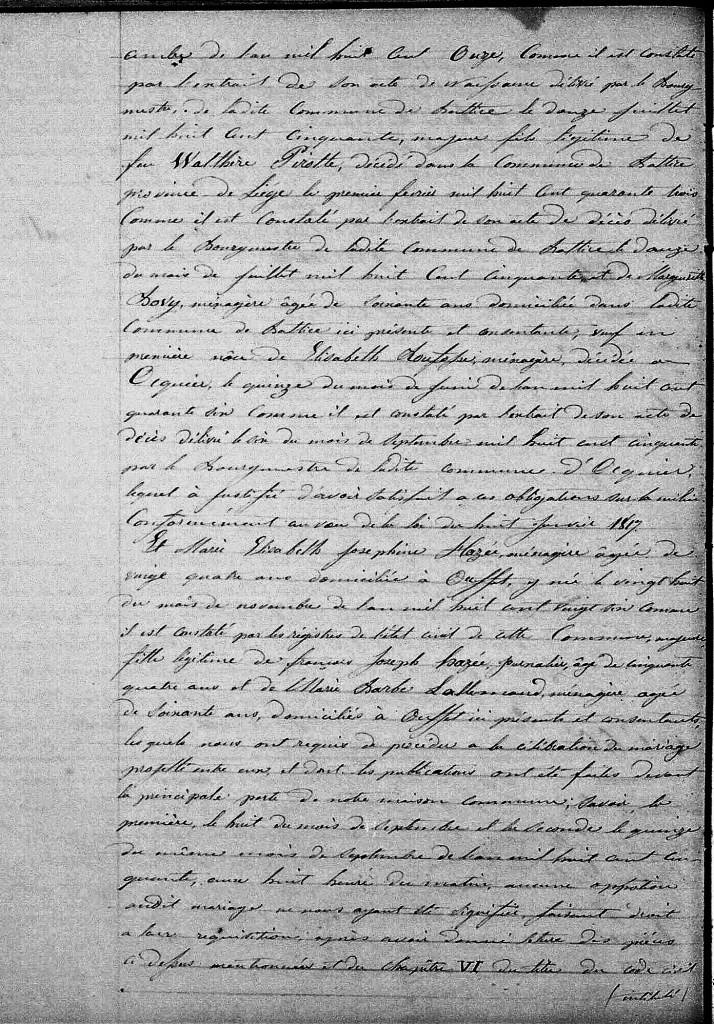 de l'an mil huit cent Onze, Comme il est constaté
par l'extrait de son acte de naissance délivré par le Bourg-
mestre de ladite Commune de Battice le douze juillet
mil huit Cent cinquante, majeur fils légitime de
feu Walthère Pirotte, décédé dans la Commune de Battice
province de Liège le premier fevrier mil huit Cent quarante trois
Comme il est Constaté par l'extrait de son acte de décès délivré
par le Bourgmestre de ladite Commune de Battice le douze
du mois de juillet mil huit Cent cinquante et de Marguerite
Bovy, ménagère âgée de Soixante ans domiciliée dans ladite
Commune de Battice ici présente et consentante, veuf en
première nôce de Elisabeth ménagère, décédée a
Ocquier, le quinze du mois de juin de l'an mil huit cent
quarante six Comme il est constaté par l'extrait de son acte de
décès délivré le six du mois de Septembre mil huit cent cinquante
par le Bourgmestre de ladite commune d'Ocquier
lequel à justifié d'avoir satisfait a ces obligations sur la milice
Conformément au vœu de la loi du huit Janvier 1817
Et Marie Elisabeth Josephine Hazée, ménagère âgée de
vingt quatre ans domiciliée à Ouffet, y née le vingt huit
du mois de novembre de l'an mil huit cent vingt six comme
il est constaté par les régistres de l'état civil de cette Commune, majeure
fille légitime de françois Joseph hazée, journalier, âgé de cinquante
quatre ans et de Marie Barbe Lallemand, ménagère agée
de Soixante ans, domiciliés à Ouffet ici présents et consentants,
les quels nous ont requis de procéder a la célébration du mariage
projetté entre eux, et dont les publications ont été faites devant
la principale porte de notre maison commune; Savoir, la
première, le huit du mois de Septembre et la Seconde le quinze
du même mois de Septembre de l'an mil huit cent cin-
quante, aux huit heure du matin, aucune opposition
audit mariage ne nous ayant été signifiée, faisant droit
a leur requisition, après avoir donné lecture des pièces
ci dessus mentionnées et du chapître VI du titre du code civil
(intitulé)